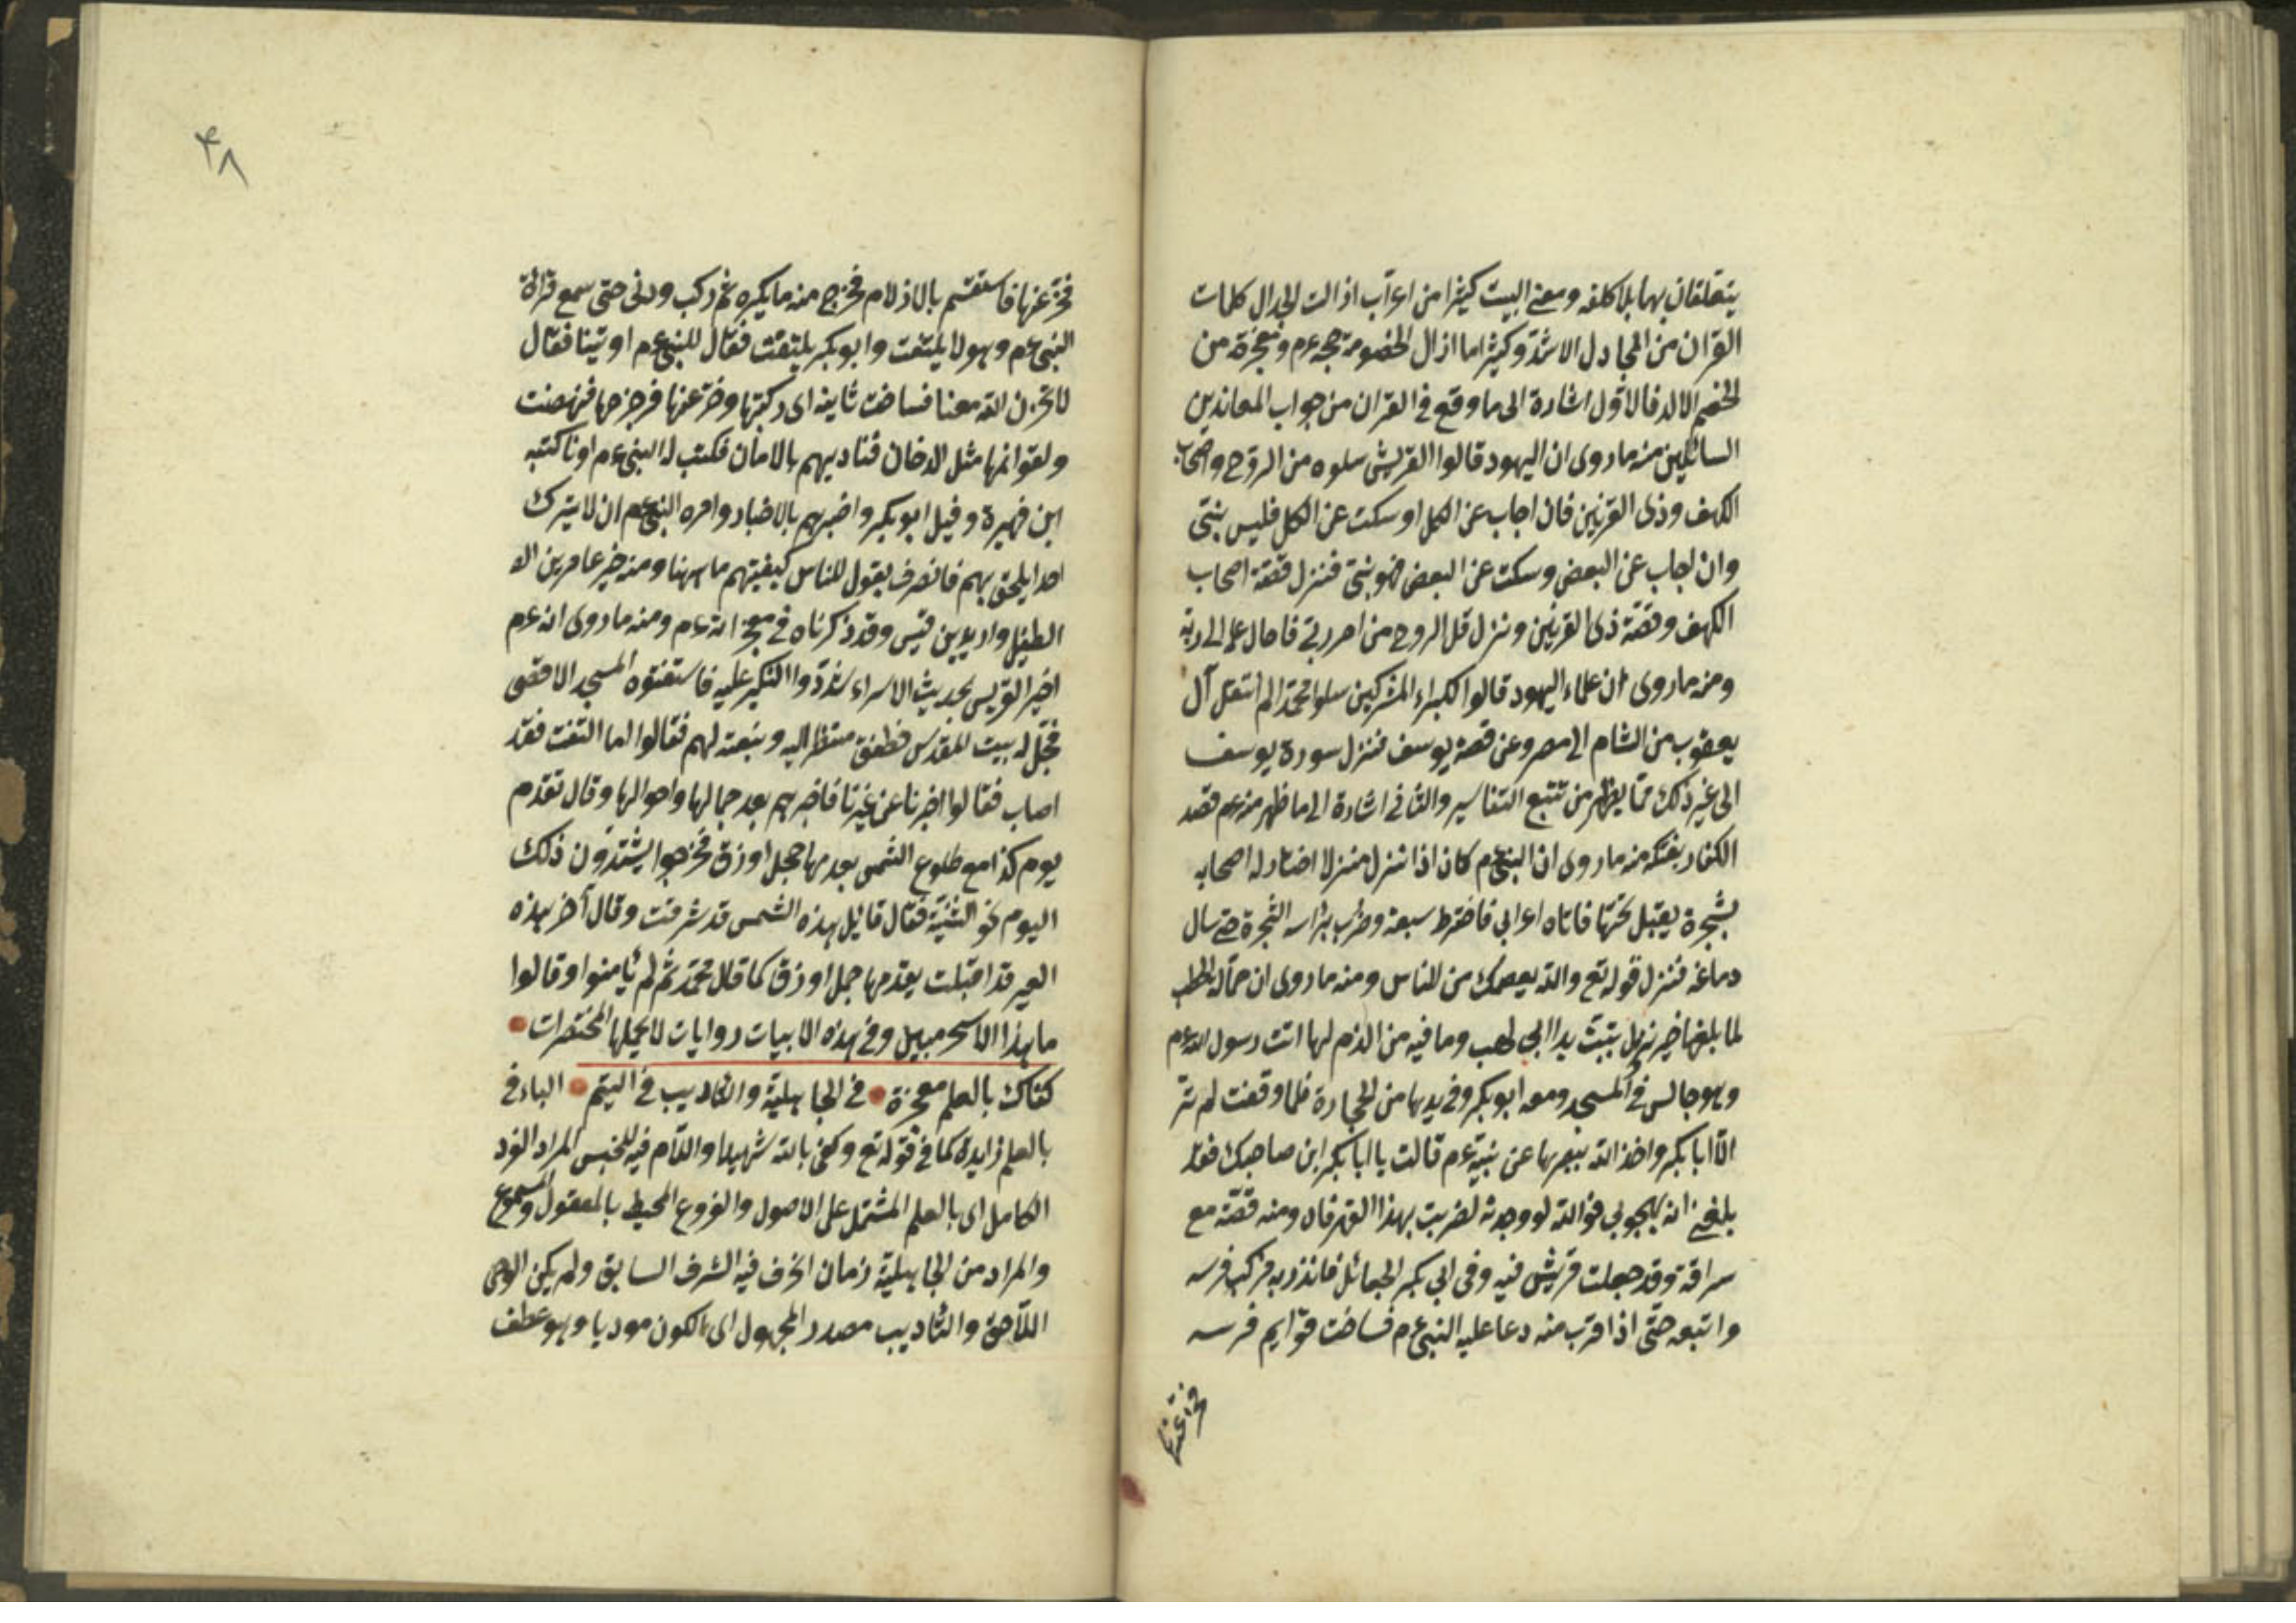 يتعلقان بهما بلا كلفه ومعنى البيت كثيرا من اعراب اذ الت الجدال كلمات
القران من المجادل الاشد وكثيرا ما ازال الخصومة حججه ءم ومعجزة من
الخصم الالد فالاول اشارة الى ما وقع فى القران من جواب المعاندين
السائلين منه ما روى ان اليهود قالوا القريش سلوه من الروح واصحاب
الكهف وذى القرنين فان اجاب عن الكل او سكت عن الكل فليس بنبى
وان اجاب عن البعض وسكت عن البعض فهو نبى فنزل قصة اصحاب
الكهف وقصة ذى القرنين ونزل قل الروح من امر ربى فاحال علم الى ربه
ومنه ما روى ان علماء اليهود قالوا لكبراء المشركين سلوا محمدا لم انتقل آل
يعقوب من الشام الى مصر وعن قصة يوسف فنزل سورة يوسف
الى غير ذلك مما يظهر من تتبع التفاسير والثانى اشارة الى ما ظهر منه ءم قصد
الكفار بفتكه منه ما روى ان النبى ءم كان اذا نزل منزلا اختار له اصحابه
شجرة يقيل تحتها فاتاه اعرابى فاخترط سيفه وضرب براسه الشجرة حتى سال
دماغه فنزل قوله تع والله يعصمك من الناس ومنه ما روى ان حمالة الحطب
لما بلغها خبر نزول تبت يدا ابى لهب وما فيه من الذم لها اتت رسول الله ءم
وهو جالس فى المسجد ومعه ابو بكر وفى يدها من الحجارة فلما وقفت لم تر
الا ابا بكر واخذ الله ببصرها عن نبيه ءم قالت يا ابا بكر اين صاحبك فقد
بلغنى انه يهجونى فوالله لو وجدته لضربت بهذا الفهر فاه ومنه قصته مع
سراقة وقد جعلت قريش فيه وفى ابى بكر الجعائل فانذر به فركب فرسه
واتبعه حتى اذا قرب منه دعا عليه النبى ءم فساخت قوايم فرسه
فخر عنها
٤٨
فخر عنها فاستقسم بالازلام فخرج منه ما يكره ثم ركب ودنى حتى سمع قرائة
النبى ءم وهو لا يلتفت وابو بكر يلتفت فقال للنبى ءم اوتينا فقال
لا تحزن الله معنا فساخت ثانيه اى ركبتها وخر عنها فزجرها فنهضت
ولقوائمها مثل الدخان فناديهم بالامان فكتب له النبى ءم امانا كتبه
ابن فهيرة وقيل ابو بكر واخبرهم بالاخبار وامره النبى ءم ان لا يترك
احدا يلحق بهم فانصرف يقول للناس كيفيتهم ما ههنا ومنه خبر عامر بن ال
الطفيل واربد بن قيس وقد ذكرناه فى معجزاته ءم ومنه ما روى انه ءم
اخبر القريس بحديث الاسراء شددوا النكير عليه فاستنعتوه المسجد الاقصى
فجلى له بيت المقدس فطفق منظر اليه وينعته لهم فقالوا اما النعت فقد
اصاب فقالوا اخبرنا عن غيرنا فاخبرهم بعدد جمالها واحوالها وقال تقدم
يوم كذا مع طلوع الشمس يقدمها جمل اورق فخرجوا يشتدون ذلك
اليوم نحو الثنية فقال قائل هذه الشمس قد شرقت وقال آخر هذه
العير قد اقبلت يقدمها جمل اورق كما قال محمد ثم لم يأمنوا وقالوا
ما هذا الا سحر مبين وفى هذه الابيات روايات لا يحملها المختصرات
كفاك بالعلم معجزة فى الجاهلية والتأديب فى اليتم الباء فى
بالعلم زايدة كما فى قوله تع وكفى بالله شهيدا واللام فيه للجنس المراد الفرد
الكامل اى بالعلم المشتمل على الاصول والفروع المحيط بالمعقول والمسموع
والمراد من الجاهلية زمان انحرف فيه الشرف السابق ولم يكن الوحى
اللاحق والتأديب مصدر المجهول اى الكون موديا وهو عطف